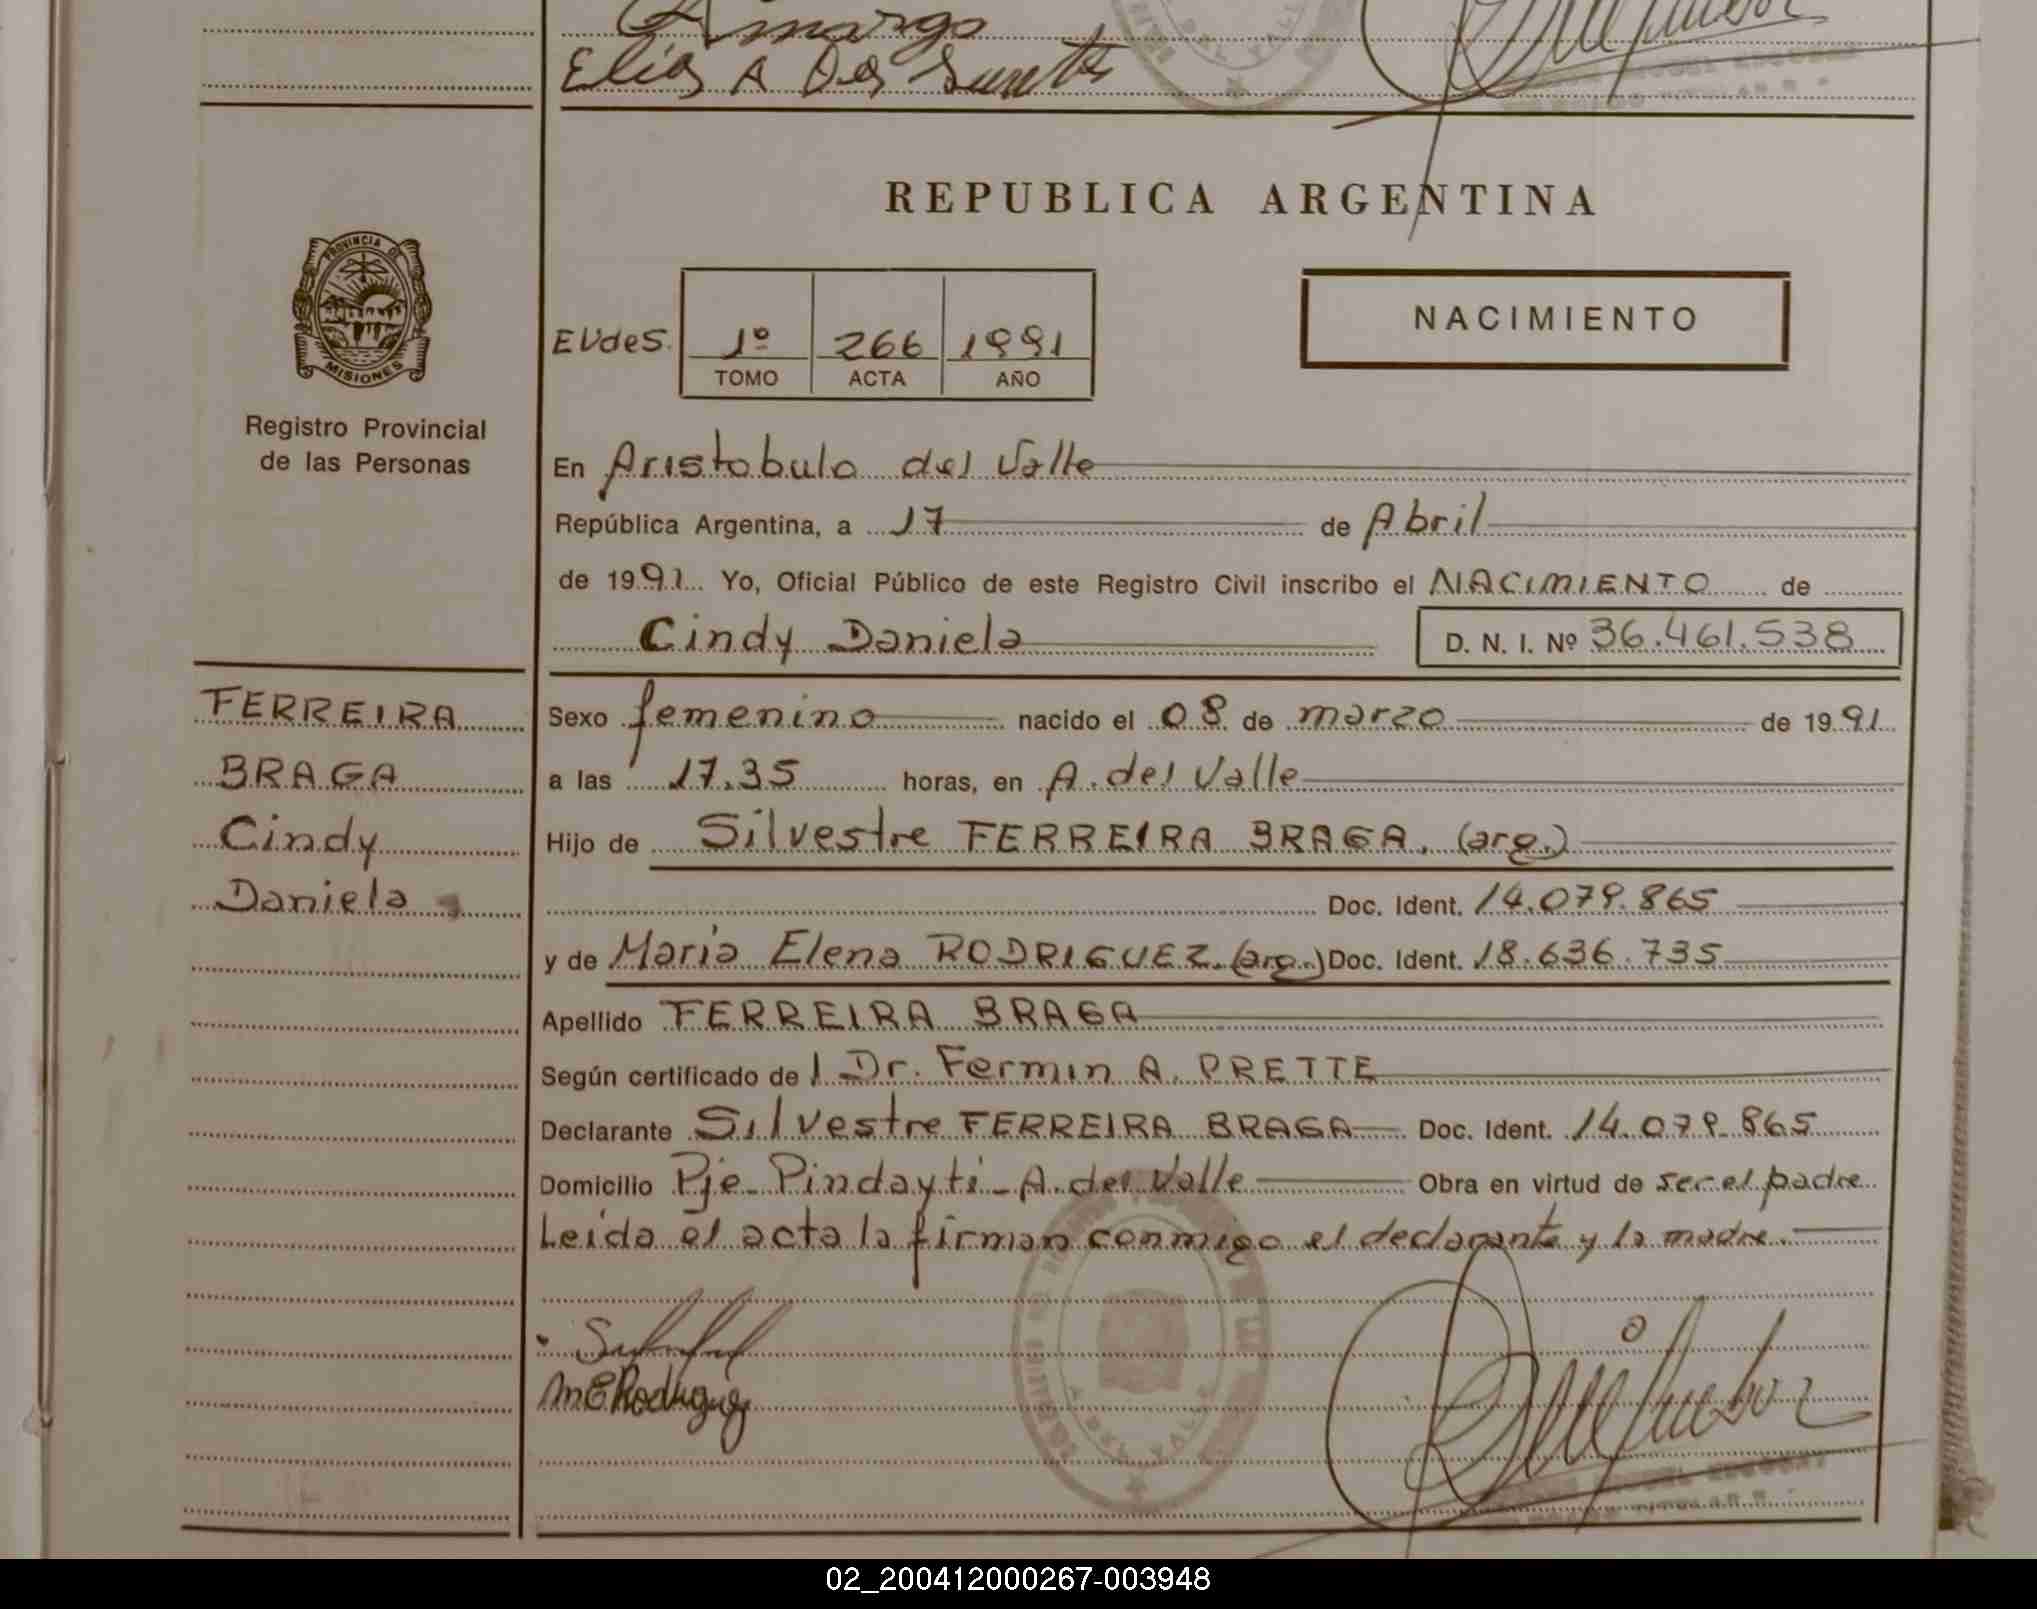 Amargo
Elias A Dos Santos
REPUBLICA ARGENTINA
PROVINCIA DE
MISIONES
Registro Provincial
de las Personas
EVdeS.
1º 266 1991
TOMO ACTA AÑO
NACIMIENTO
En Aristobulo del Valle
República Argentina, a 17 de Abril
de 1991 Yo, Oficial Público de este Registro Civil inscribo el NACIMIENTO de
Cindy Daniela D. N. I. Nº 36.461.538
FERREIRA
BRAGA
Cindy
Daniela
Sexo femenino nacido el 08 de marzo de 1991
a las 17.35 horas, en A. del Valle
Hijo de Silvestre FERREIRA BRAGA. (arg.)
Doc. Ident. 14.079.865
y de Maria Elena RODRIGUEZ. (arg.) Doc. Ident. 18.636.735
Apellido FERREIRA BRAGA
Según certificado de l Dr. Fermin A. PRETTE
Declarante Silvestre FERREIRA BRAGA Doc. Ident. 14.079.865
Domicilio Pje. Pindayti - A. del Valle Obra en virtud de ser el padre
Leida el acta la firman conmigo el declarante y la madre.
M E Rodriguez
02_200412000267-003948